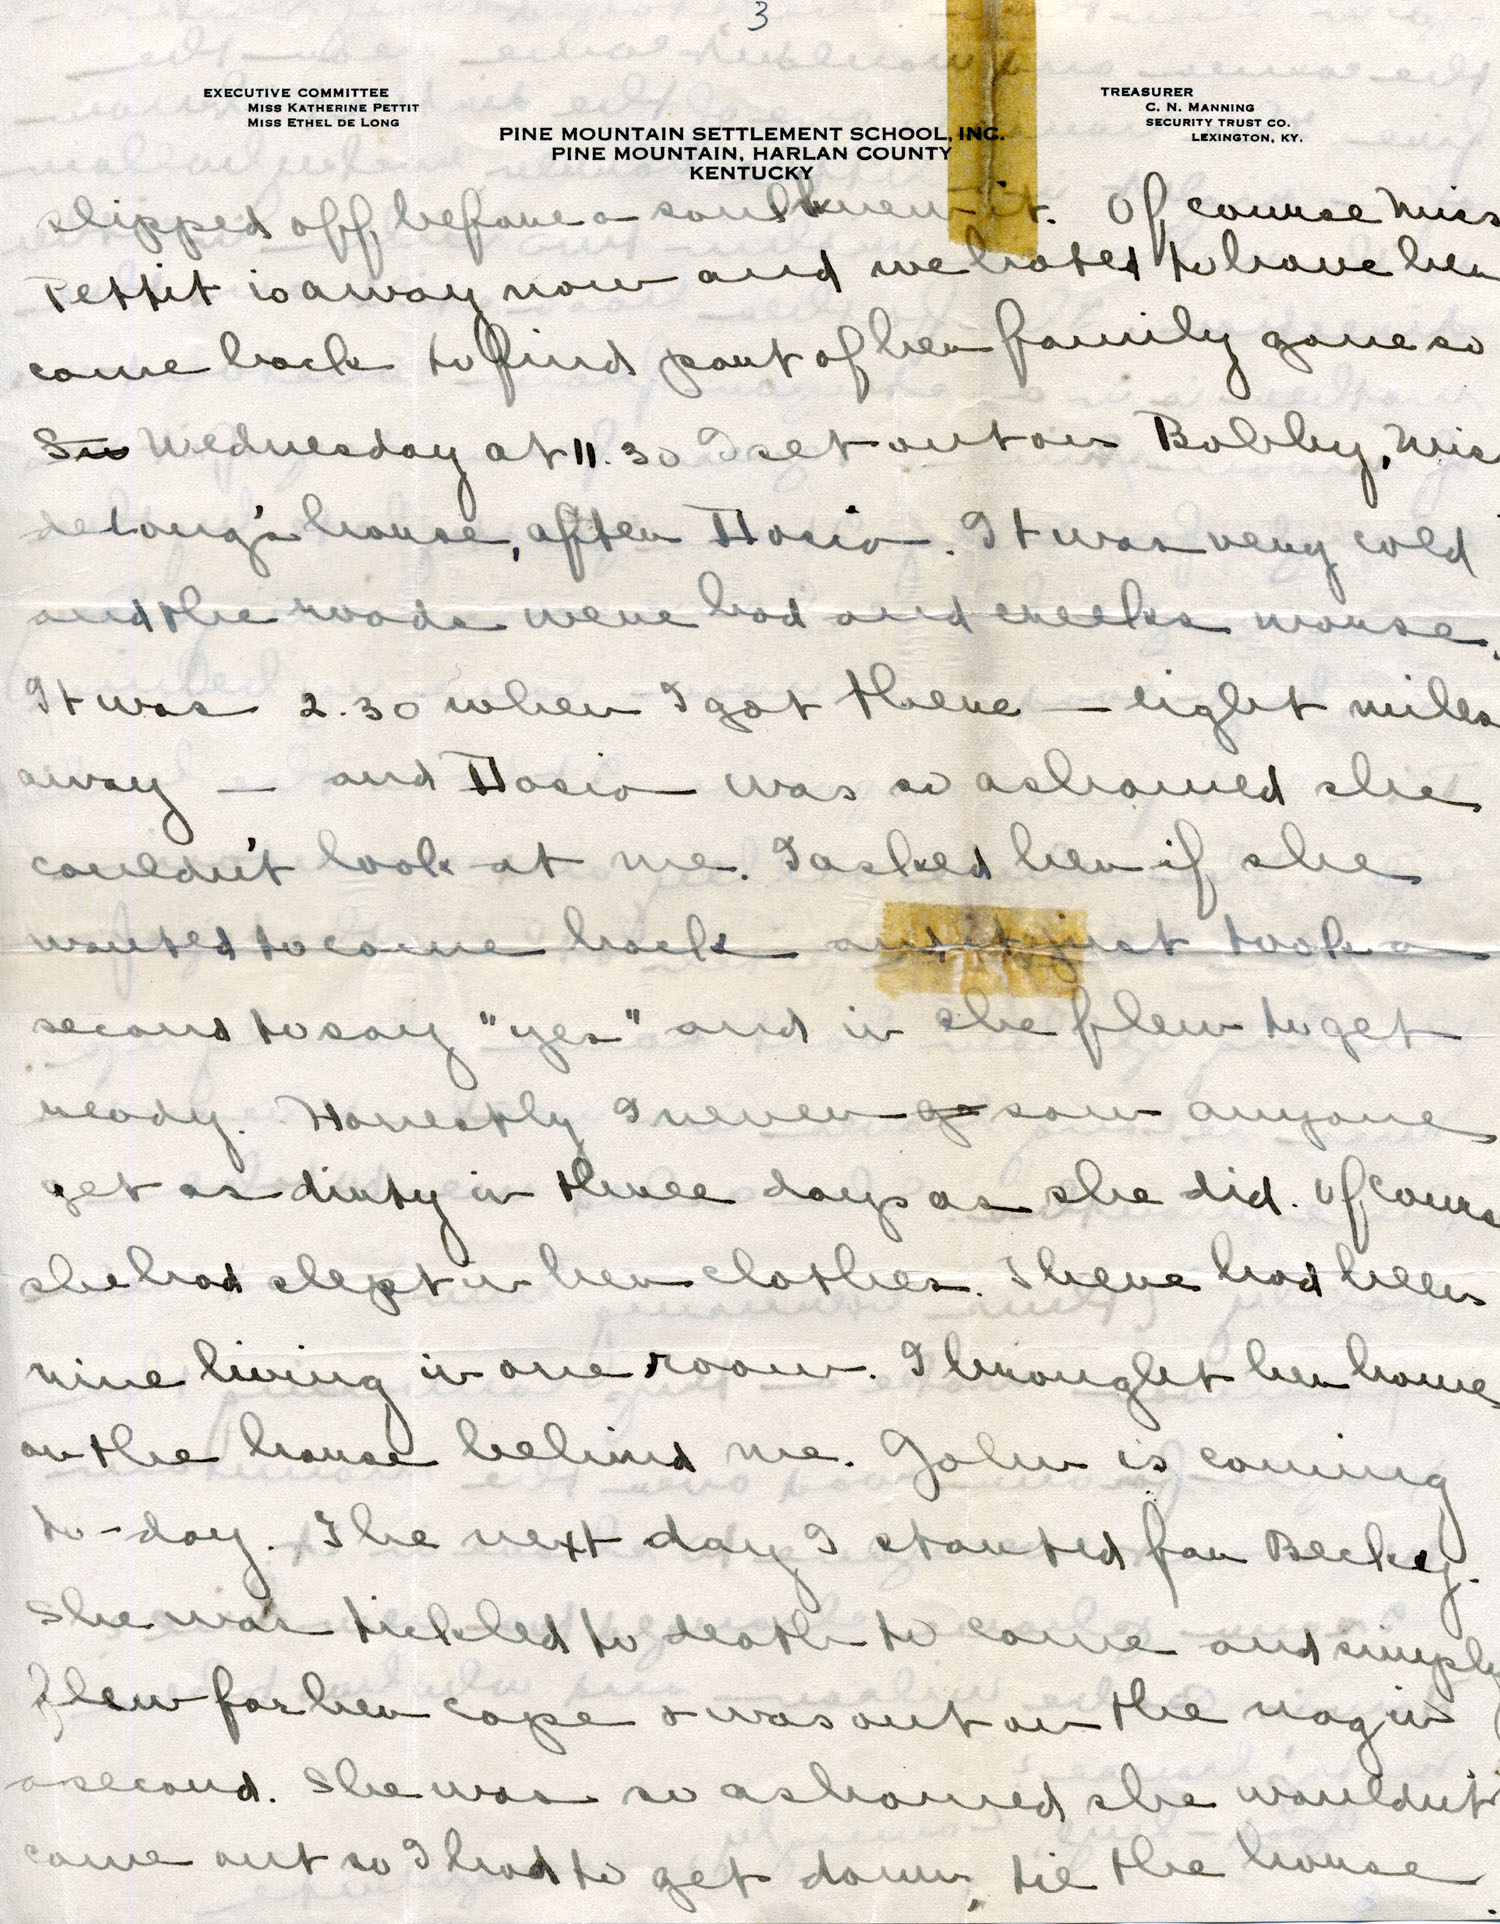 3
EXECUTIVE COMMITTEE
MISS KATHERINE PETTIT
MISS ETHEL DE LONG
TREASURER
C. N. MANNING
SECURITY TRUST CO.
LEXINGTON, KY.
PINE MOUNTAIN SETTLEMENT SCHOOL, INC.
PINE MOUNTAIN, HARLAN COUNTY
KENTUCKY
slipped off, before a soul knew it. Of course Miss
Pettit is away now and we hated to have her
come back to find part of her family gone so
So Wednesday at 11.30 I set out on Bobby, Miss
de Long's horse, after Hosia. It was very cold
and the roads were bad and creeks worse.
It was 2.30 when I got there – eight miles
away – and Hosia was so ashamed she
couldn't look at me. I asked her if she
wanted to come back and it just took a
second to say "yes" and in she flew to get
ready. Honestly I never go saw anyone
get as dirty in three days as she did. Of course
she had slept in her clothes. There had been
nine living in one room. I brought her home
on the horse behind me. John is coming
to-day. The next day I started for Becky.
She was tickled to death to come and simply
flew for her cape & was out on the nag in
a second. She was so ashamed she wouldn't
come out so I had to get down, tie the horse